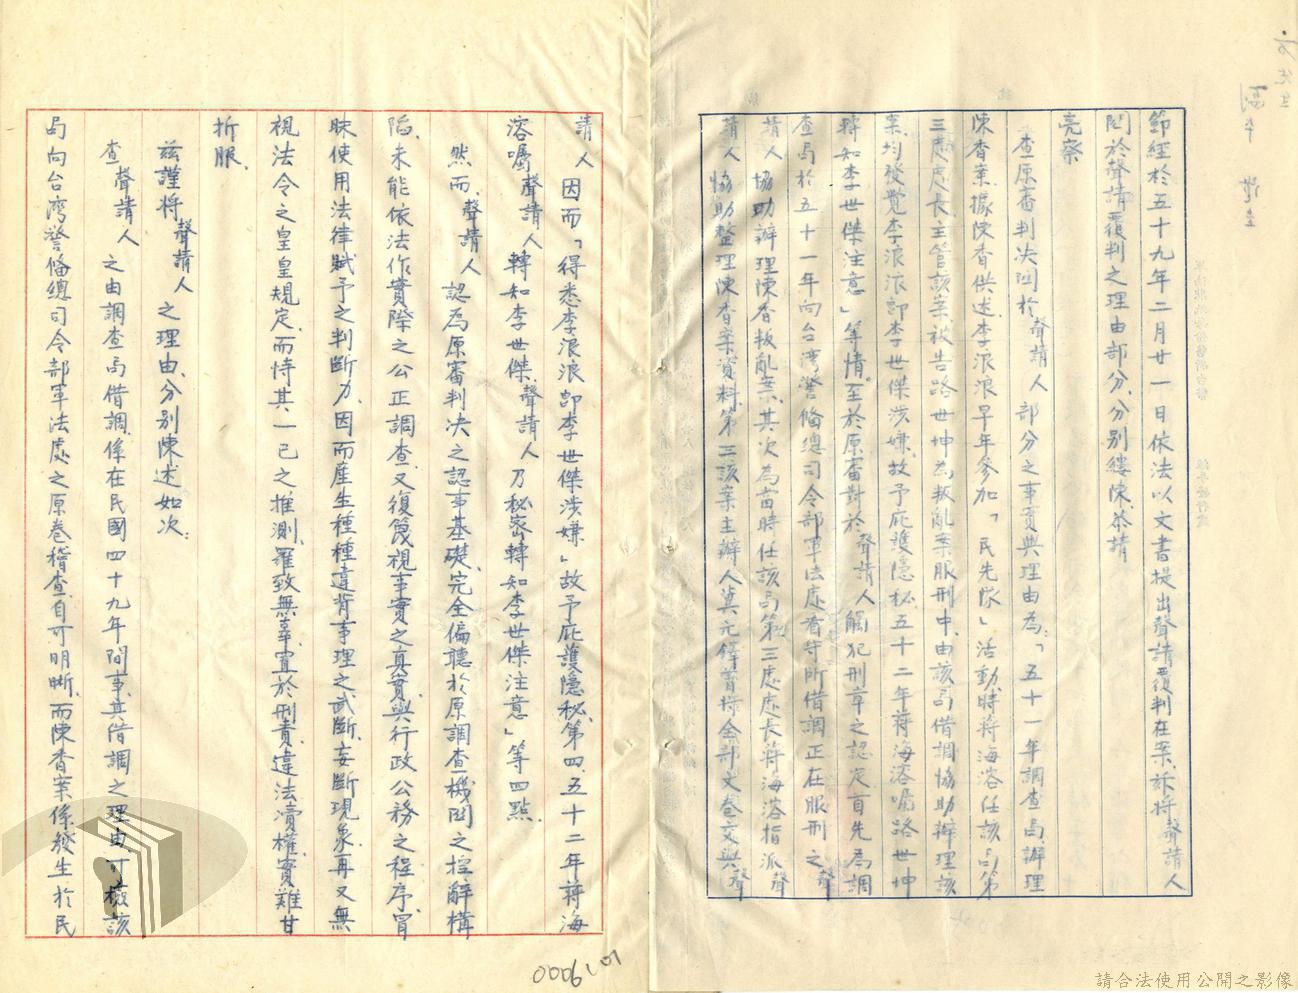 副本
節經於五十九年二月廿一日依法以文書提出聲請覆判在案、茲將聲請人
關於聲請覆判之理由部分、分別縷陳、恭請
亮察
查原審判決關於聲請人部分之事實與理由為：「五十一年調查局辦理
陳香案、據陳香供述、李浪浪早年參加「民先隊」活動時蔣海溶任該局第
三處處長、主管該案、被告路世坤為叛亂案服刑中、由該局借調協助辦理該
案、均發覺李浪浪卽李世傑涉嫌、故予庇護隱秘、五十二年蔣海溶囑路世坤
轉知李世傑注意」等情。至於原審對於聲請人觸犯刑章之認定、首先為調
查局於五十一年向台湾警備總司令部軍法處看守所借調正在服刑之聲
請人協助辦理陳香叛亂案、其次為當時任該局第三處處長蔣海溶指派聲
請人協助整理陳香案資料、第三該案主辦人 將全部文卷交與聲
請人因而「得悉李浪浪卽李世傑涉嫌」故予庇護隱秘、第四、五十二年蔣海
溶囑聲請人轉知李世傑、聲請人乃秘密轉知李世傑注意」等四點.
然而、聲請人認為原審判決之認事基礎、完全偏聽於原調查機関之控辭構
陷、未能依法作實際之公正調查、又復篾視事實之真實與行政公務之程序、冒
昧使用法律賦予之判斷力、因而產生種種違背事理之武斷、妄斷現象、再又無
視法令之皇皇規定、而恃其一己之推測、羅致無辜、寘於刑責、違法瀆權、實難甘
折服、
茲謹將聲請人之理由、分別陳述如次：
查聲請人之由調查局借調、係在民國四十九年間事、其借調之理由、可檢該
局向台湾警備總司令部軍法處之原卷稽查、自可明晰、而陳香案係發生於民
0006
請合法使用公開之影像